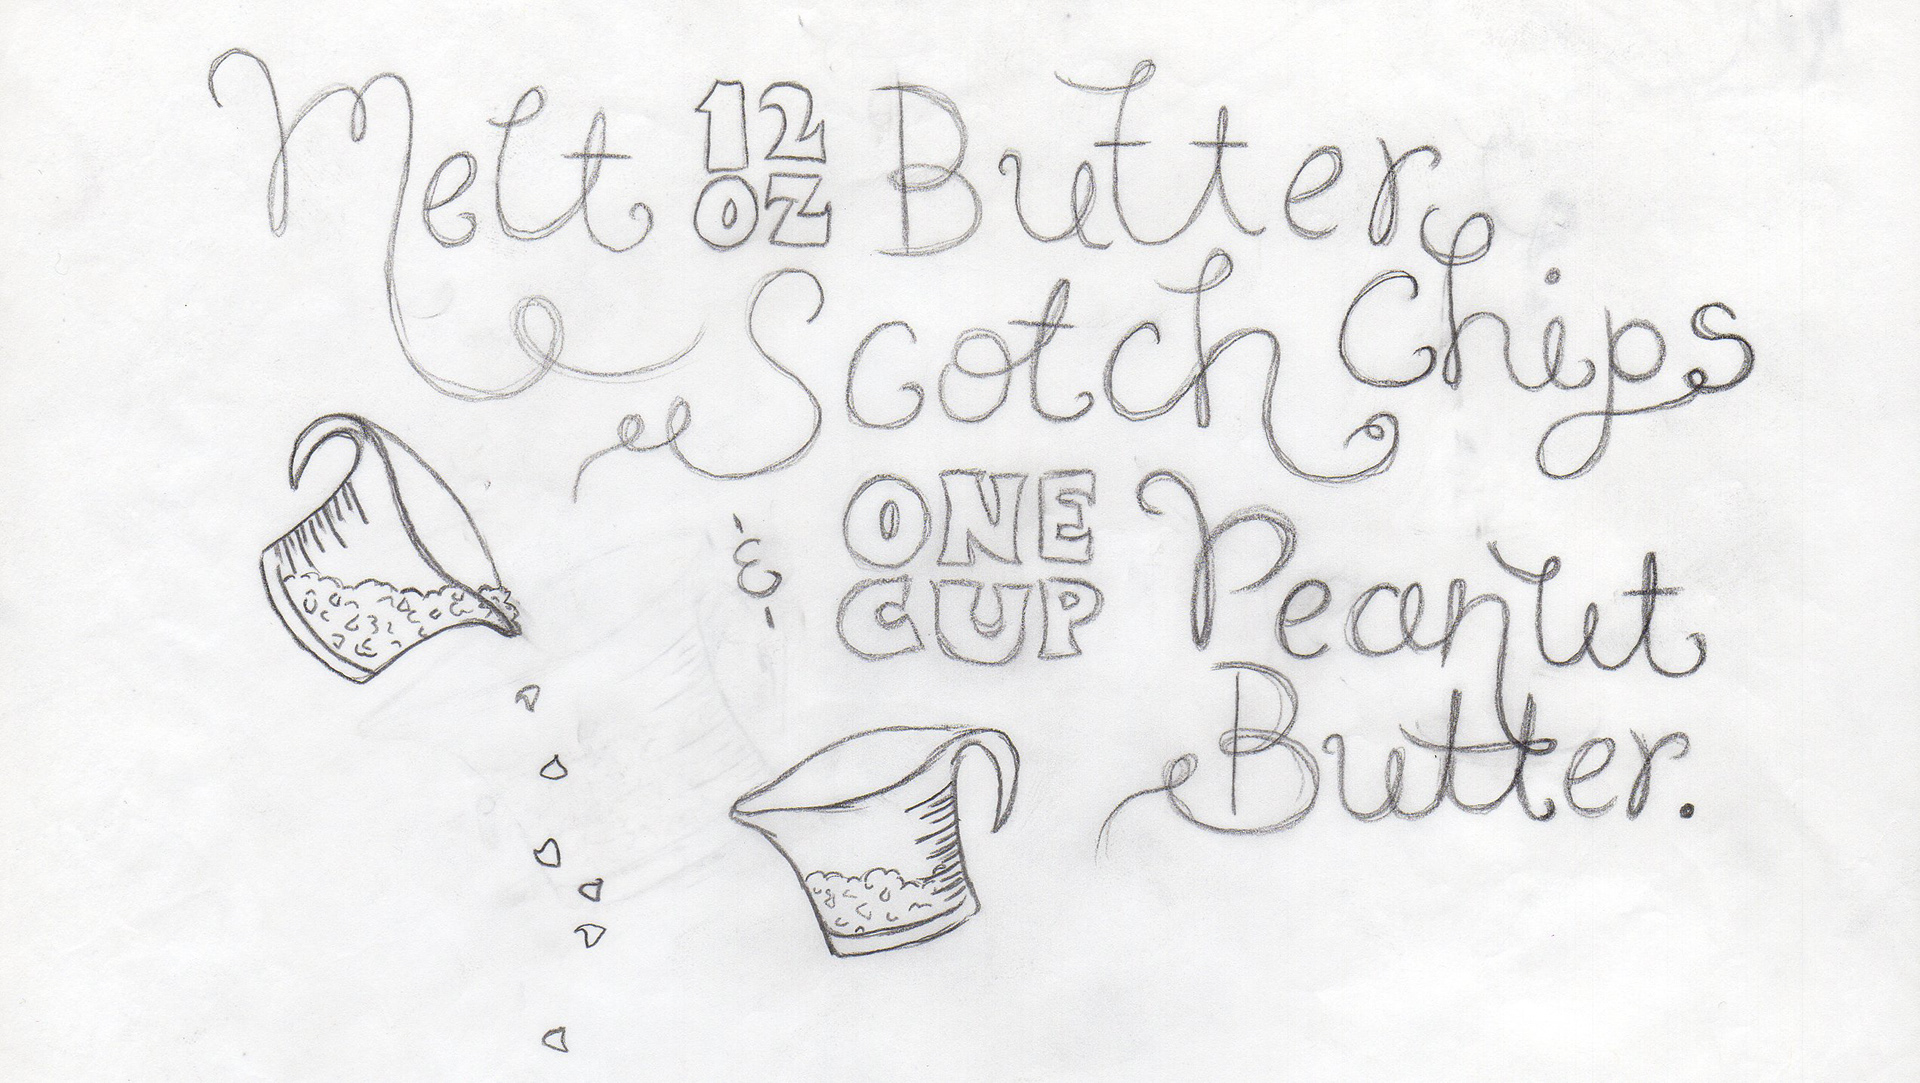 Melt 12 oz Butter
Scotch Chips
& ONE CUP Peanut
Butter.